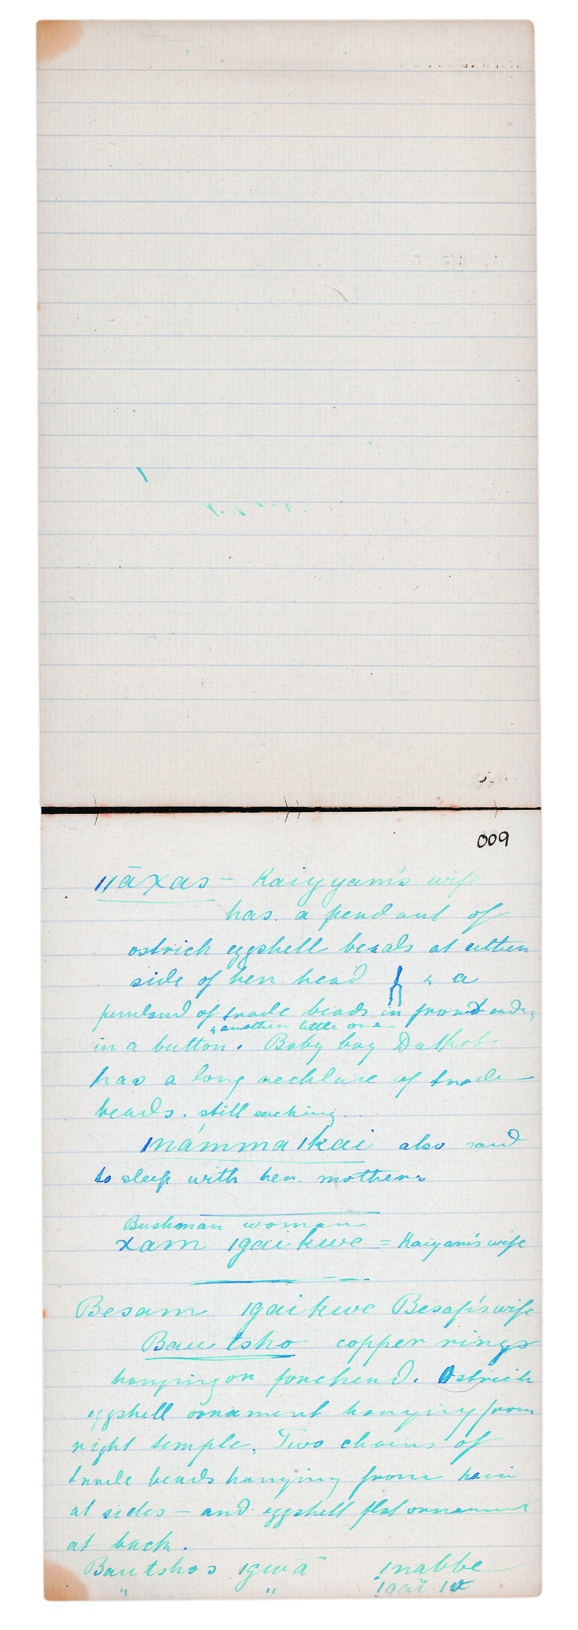 009
||āxas – Kaiyyam's wife
has a pendant of
ostrich eggshell beads at either
side of her head & a
pendant of trade beads in front ends
" another little one
in a button. Baby boy
has a long necklace of trade
beads. still sucking
|námma|kai also said
to sleep with her mother
Bushman woman
xam |gaikwe = Kaiyam's wife
Besam |gaikwe Besa's wife
Bautsho copper rings
hanging on forehead. Ostrich
eggshell ornament hanging from
right temple. Two chains of
trade beads hanging from hair
at sides – and eggshell flat ornament
at back.
Bautshos |gwā |nabbe
" "